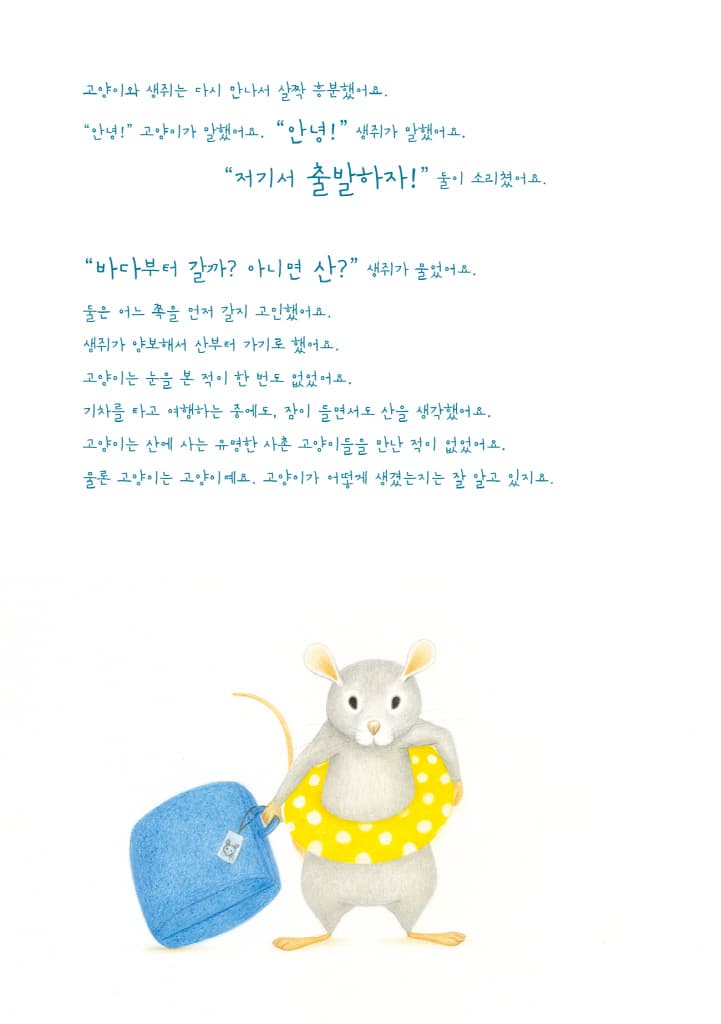 고양이와 생쥐는 다시 만나서 살짝 흥분했어요.
“안녕!” 고양이가 말했어요. “안녕!” 생쥐가 말했어요.
“저기서 출발하자!” 둘이 소리쳤어요.
“바다부터 갈까? 아니면 산?” 생쥐가 물었어요.
둘은 어느 쪽을 먼저 갈지 고민했어요.
생쥐가 양보해서 산부터 가기로 했어요.
고양이는 눈을 본 적이 한 번도 없었어요.
기차를 타고 여행하는 중에도, 잠이 들면서도 산을 생각했어요.
고양이는 산에 사는 유명한 사촌 고양이들을 만난 적이 없었어요.
물론 고양이는 고양이예요. 고양이가 어떻게 생겼는지는 잘 알고 있지요.